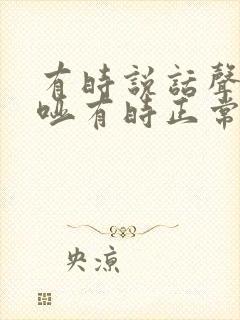 有時說話聲
啞有時正常
央涼